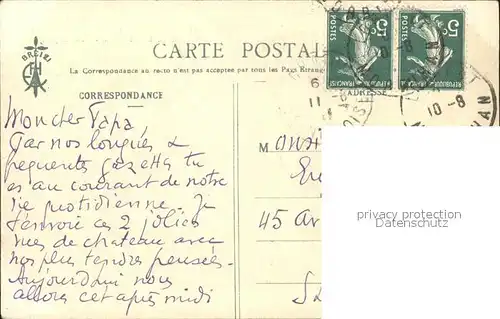 BREIZ
CARTE POSTAL
La Correspondance au recto n'est pas acceptée par tous les Pays Etrange
CORRESPONDANCE
ADRESSE
5c 5c
POSTES POSTES
REPUBLIQUE FRANÇAISE
10-8
10-8
Mon cher Papa,
Par nos longues &
frequentes gazettes tu
es au courant de notre
vie quotidienne. Je
t'envoie ces 2 jolies
vues de chateau avec
nos plus tendres pensées.
Aujourdhui nous
allons cet après midi
M
45 Av
privacy protection
Datenschutz